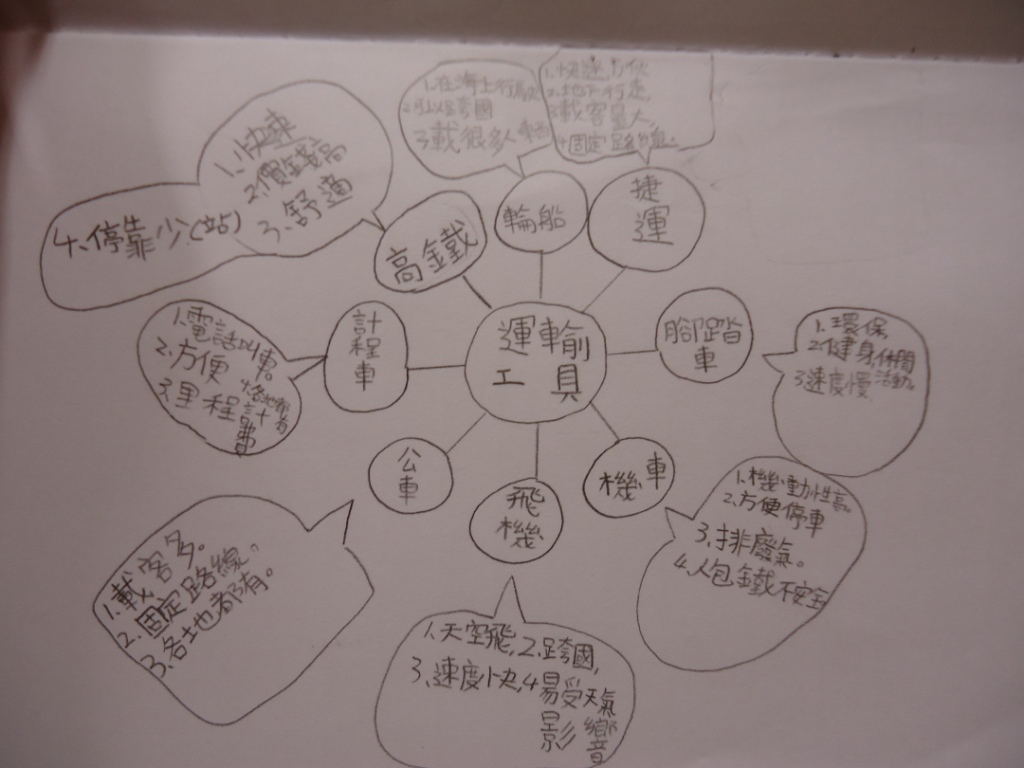 運輸
工具
高鐵
1.快車
2.價錢高
3.舒適
4、停靠少(站)
輪船
1.在海上行
跨國
3載很多人
捷
運
1.快速方便
2.地下行走
3載容量大
4固定路線。
腳踏
車
1.環保
2健身休閒
活動。
3速度慢
機車
1.機動性高。
2.方便停車
3、排廢氣。
4.人包鐵不安全
飛
機
1.天空飛,2.跨國,
3、速度快,4易受天氣
影響
公
車
1.載客多。
2.固定路線。
3、各地都有。
計
程
車
1.電話叫車。
2.方便
3.里程計
費